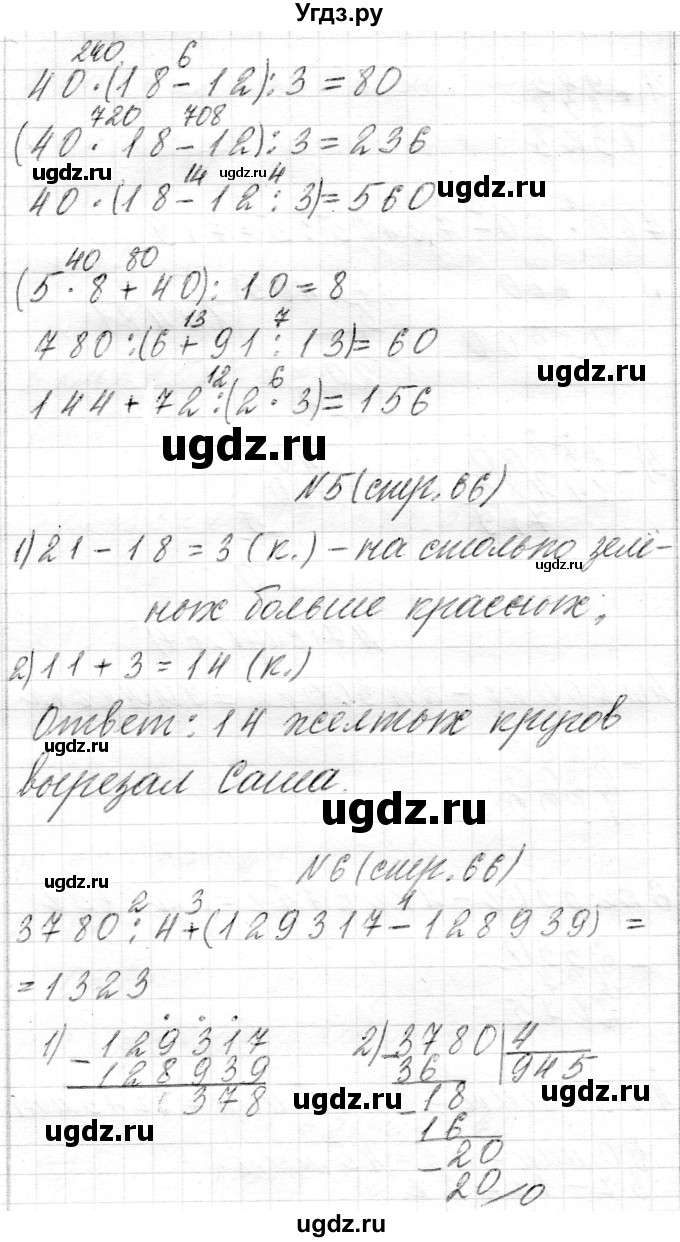 Угдз.ру
240 6
40·(18-12):3=80
720 708
(40·18-12):3=236
ugdz.ru ugdz.ru ugdz.ru
14 4
40·(18-12:3)=560
40 80
(5·8+40):10=8
13 7
780:(6+91:13)=60
ugdz.ru
12 6
144+72:(2·3)=156
ugdz.ru
N5(стр.66)
1)21-18=3(к.)-на столько зелё-
ugdz.ru
ных больше красных.
2)11+3=14(к.)
Ответ: 14 жёлтых кругов
ugdz.ru
вырезал Саша.
ugdz.ru
N6(стр.66)
ugdz.ru
2 3 4
3780:4+(129317-128939)=
=1323
1) -129317 2) -3780|4
128939 36 945
378 -18
ugdz.ru ugdz.ru ugdz.ru
16
-20
20
0
ugdz.ru